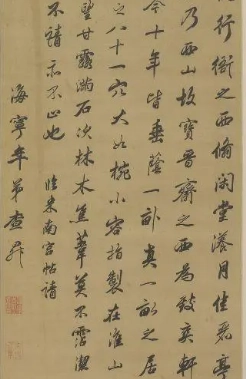 行衙之西翛閑堂漾月佳麗亭
乃西山故寶晉齋之西為致爽軒
今十年皆垂蔭一畝真一畝之居
之八十一穴大如椀小容指製在淮山
望甘露滿石次林木焦葦莫不霑潔
不請亦不止也 臨米南宮帖請
海寧年弟查昇